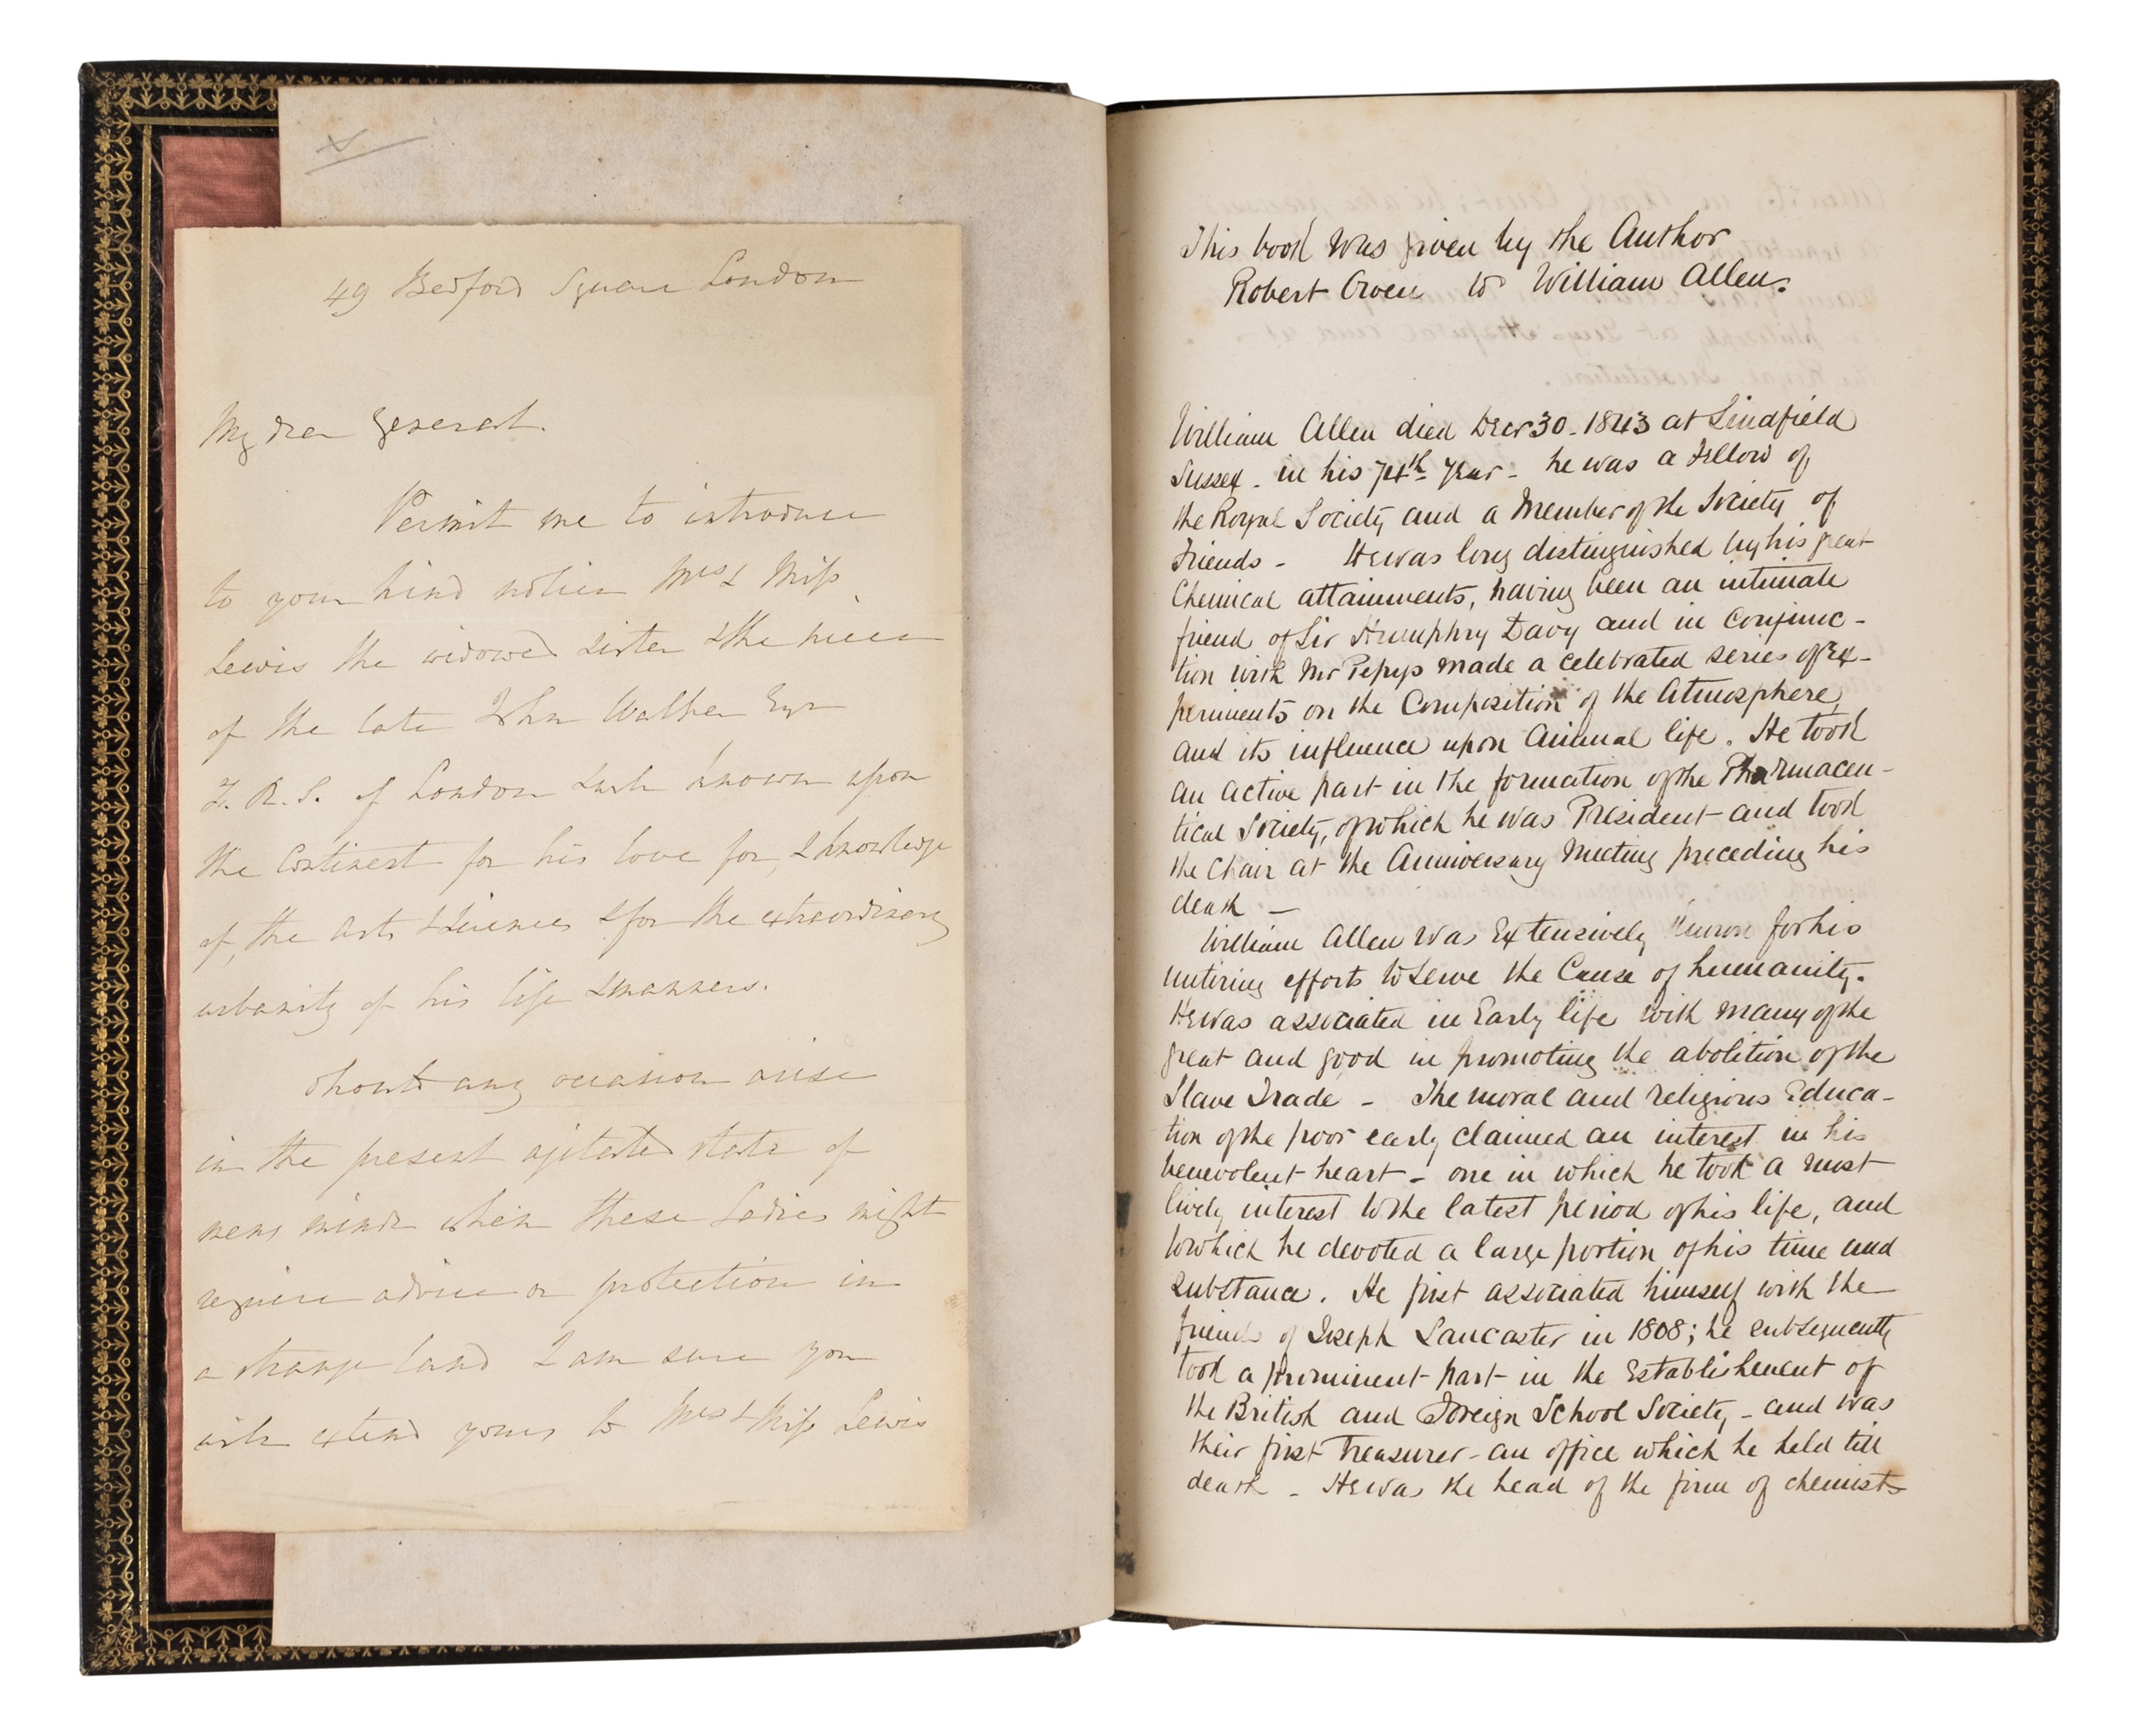 49 Bedford Square London
My dear General.
Permit me to introduce
to your kind notice Mrs & Miss
Lewis the widowed sister & the niece
of the late John Walker Esqr
F. R. S. of London well known upon
the Continent for his love for, & knowledge
of, the arts & sciences & for the extraordinary
urbanity of his life & manners.
Should any occasion arise
in the present agitated state of
mens minds when these Ladies might
require advice or protection in
a strange land I am sure you
will extend yours to Mrs & Miss Lewis
This book was given by the Author
Robert Owen to William Allen.
William Allen died Decr 30 - 1843 at Lindfield
Sussex - in his 74th Year - he was a Fellow of
the Royal Society and a Member of the Society of
Friends - He was long distinguished by his great
Chemical attainments, having been an intimate
friend of Sir Humphry Davy and in Conjunc-
tion with Mr Pepys made a celebrated series of Ex-
periments on the Composition of the Atmosphere,
and its influence upon Animal life. He took
an active part in the formation of the Pharmaceu-
tical Society, of which he was President - and took
the Chair at the Anniversary Meeting preceding his
death -
William Allen was Extensively known for his
untiring efforts to serve the Cause of humanity.
He was associated in Early life with many of the
great and good in promoting the abolition of the
Slave Trade - The moral and religious Educa-
tion of the poor early claimed an interest in his
benevolent heart - one in which he took a most
lively interest to the latest period of his life, and
to which he devoted a large portion of his time and
substance. He first associated himself with the
friends of Joseph Lancaster in 1808; he subsequently
took a prominent part in the Establishment of
the British and Foreign School Society - and was
their first Treasurer - an office which he held till
death - He was the head of the firm of chemists